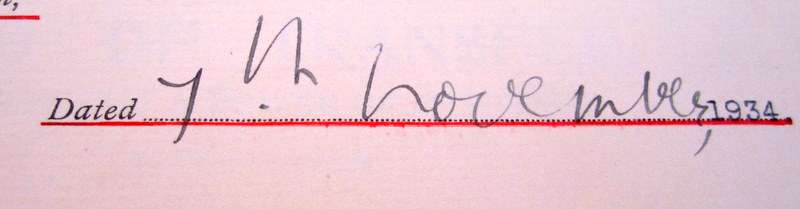 Dated 7th November, 1934.